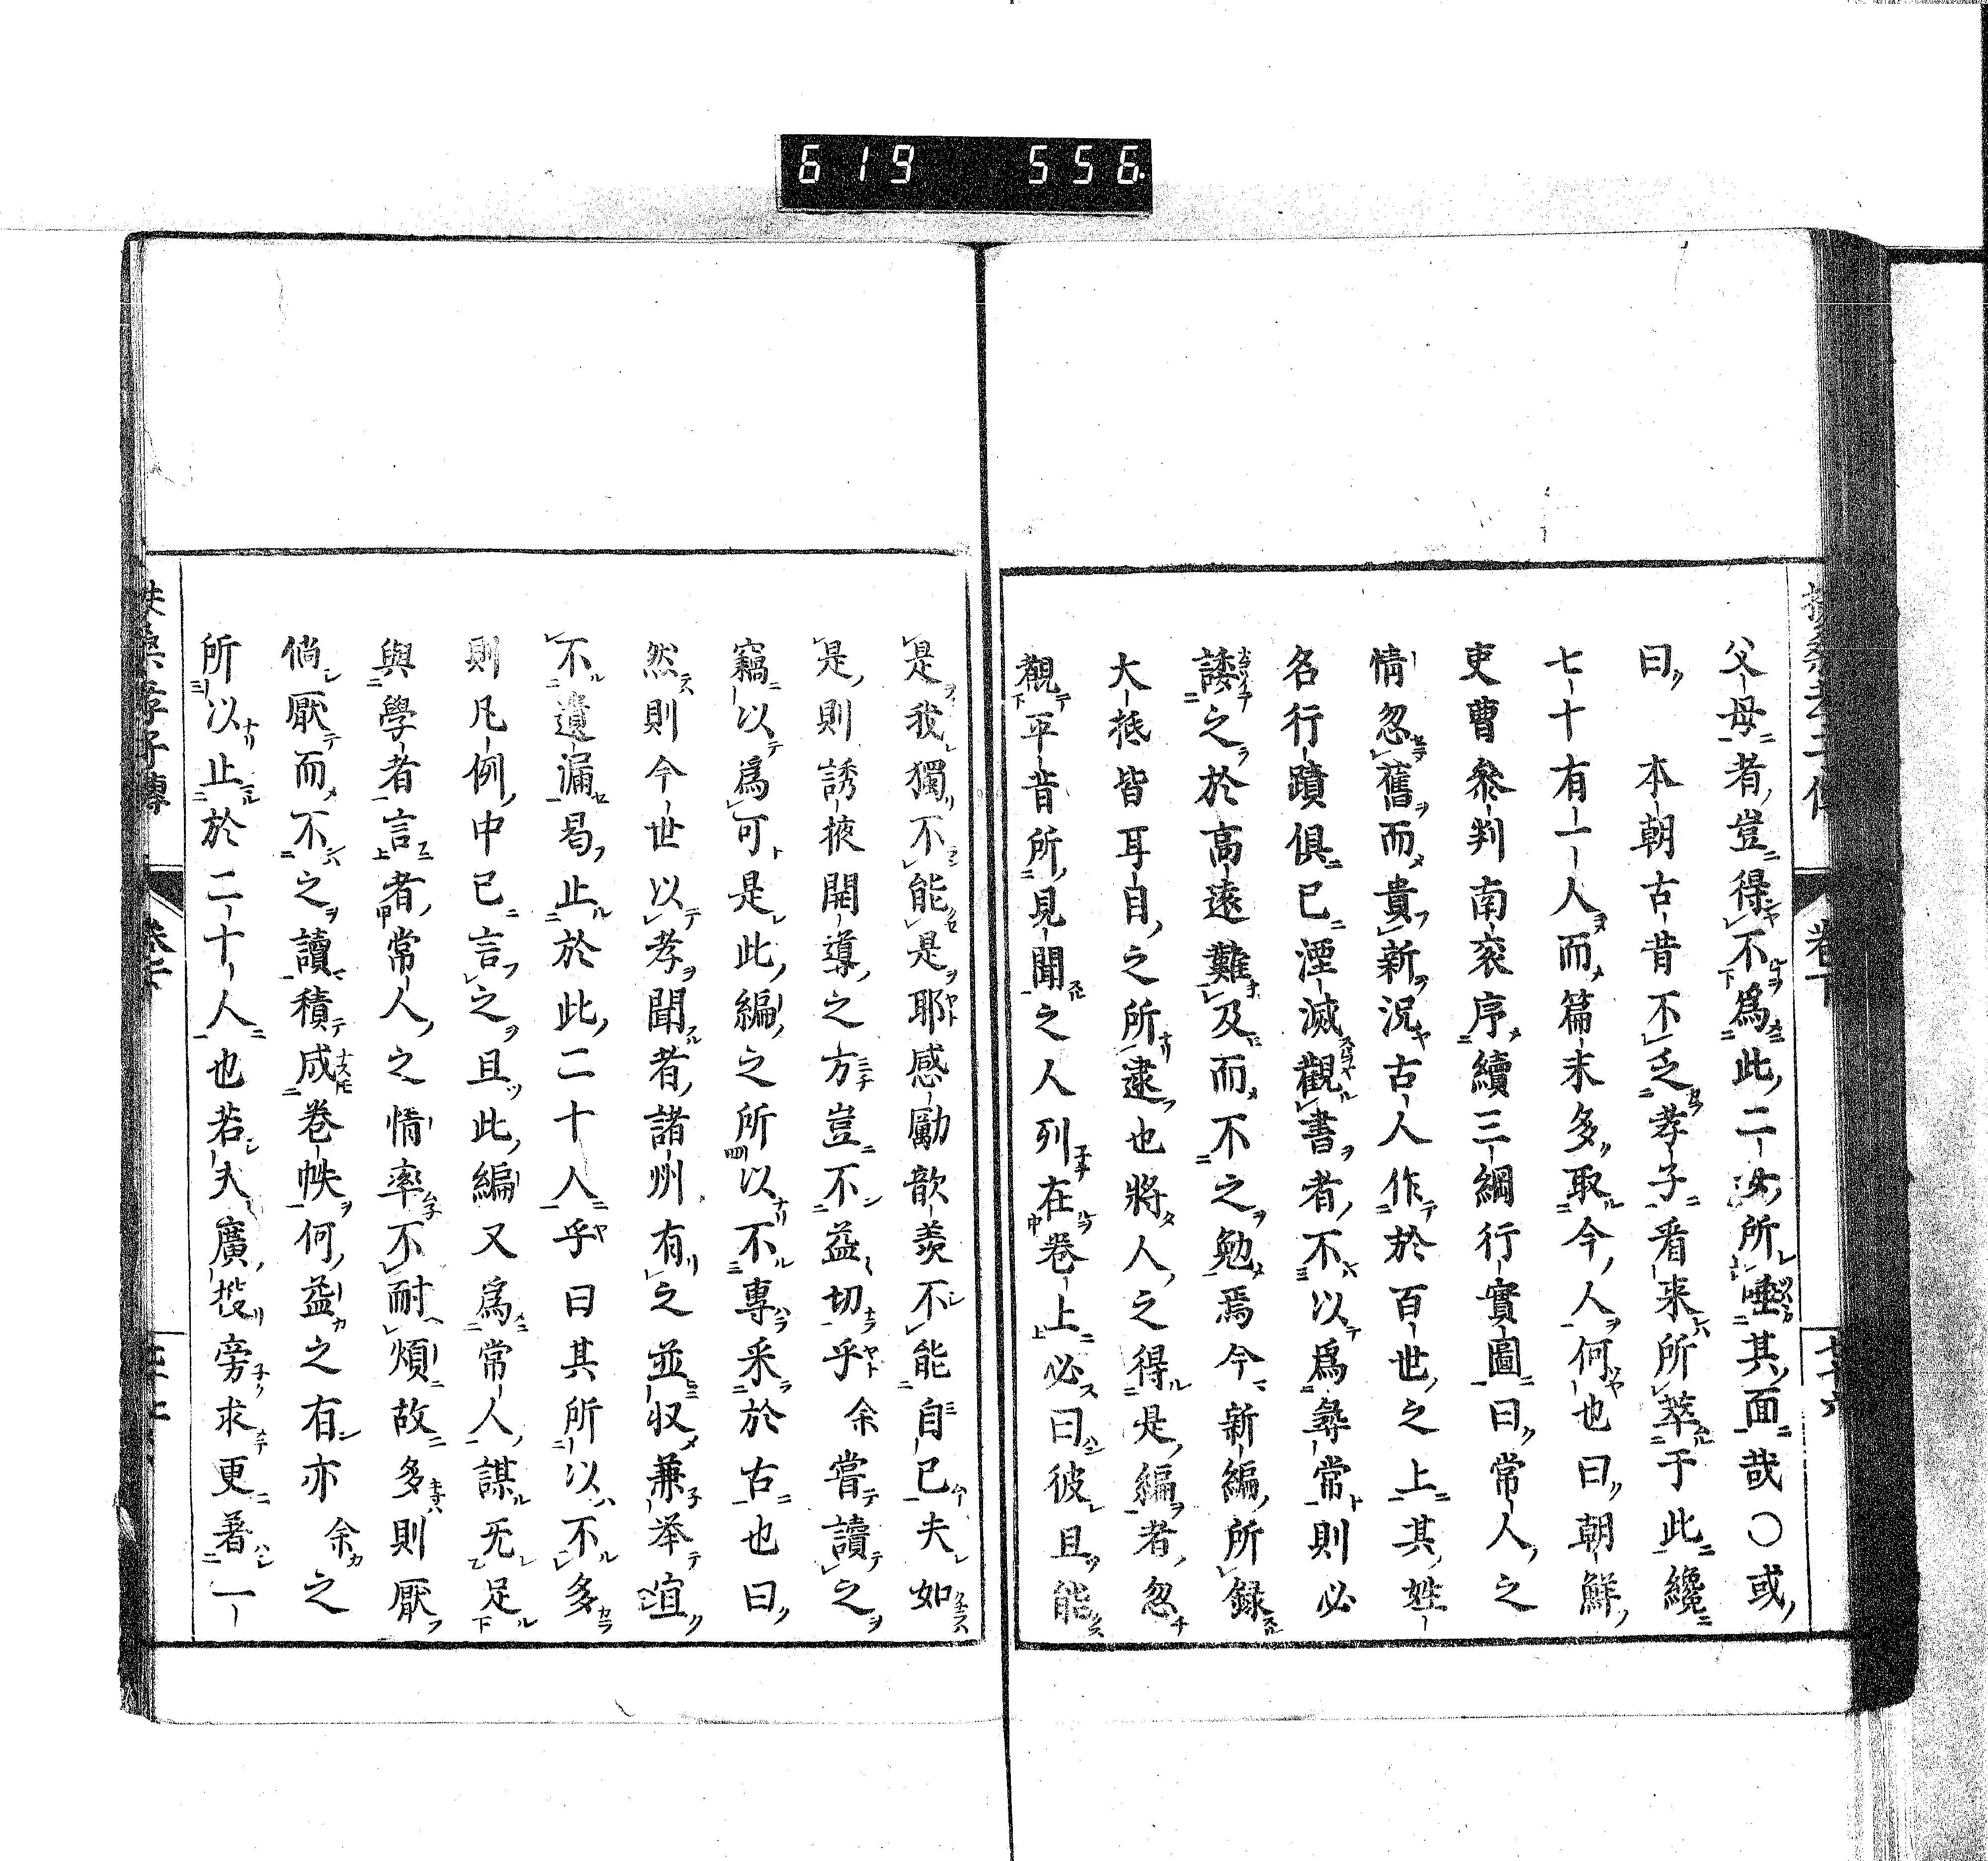 619 556.
父母者豈得不爲此二女所唾其面哉○或
曰 本朝古昔不乏孝子看來所萃于此纔
七十有一人而篇末多取今人何也曰朝鮮
吏曹參判南袞序續三綱行實圖曰常人之
情忽舊而貴新況古人作於百世之上其姓
名行蹟俱已湮滅觀書者不以爲彜常則必
諉之於高遠難及而不之勉焉今新編所録
大抵皆耳目之所逮也將人之得是編者忽
觀平昔所見聞之人列在卷上必曰彼且能
是我獨不能是耶感勵歆羨不能自已夫如
是則誘掖開導之方豈不益切乎 余嘗讀之
竊以爲可是此編之所以不專釆於古也曰
然則今世以孝聞者諸州有之並収兼举
不遺漏曷止於此二十人乎曰其所以不多
則凡例中已言之且此編又爲常人謀旡足
與學者言者常人之情率不耐煩故多則厭
倘厭而不之讀積成卷帙何益之有亦 余之
所以止於二十人也若夫廣搜旁求更著一
扶桑孝子傳